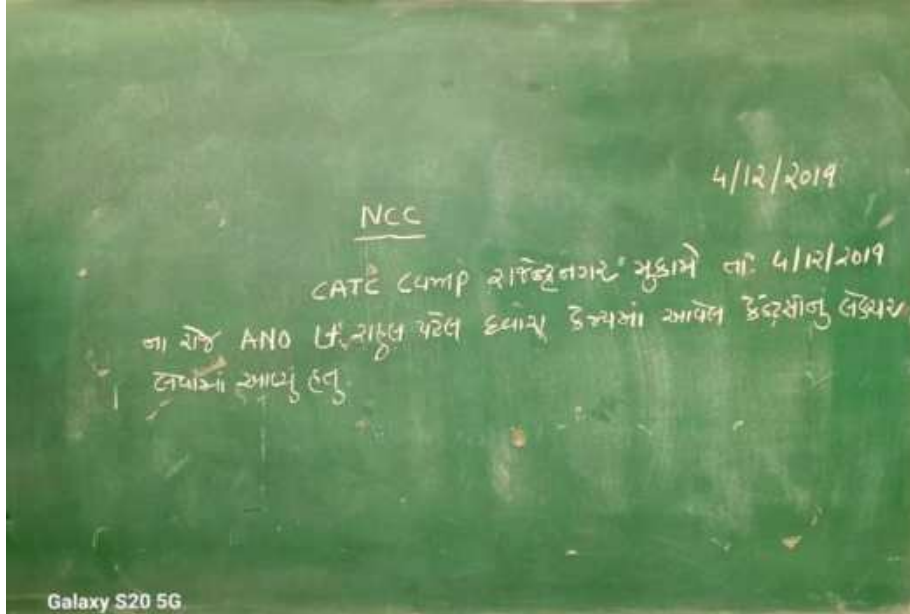 4/12/2019
NCC
CATC Camp રાજેન્દ્રનગર મુકામે તાઃ 4/12/2019
ના રોજ ANO Lt. રાહુલ પટેલ દ્વારા કેમ્પમાં આવેલ કેડેટ્સોનું લેક્ચર
લેવામાં આવ્યું હતું.
Galaxy S20 5G